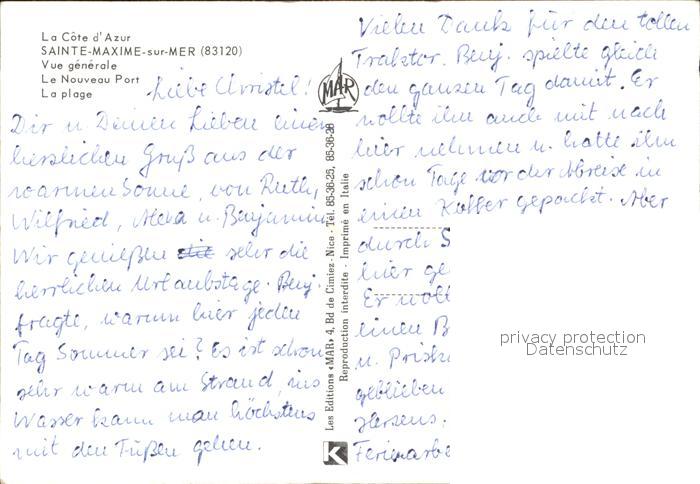 La Côte d'Azur
SAINTE-MAXIME-sur-MER (83120)
Vue générale
Le Nouveau Port
La plage
Liebe Christel!
Dir u. Deinen Lieben einen
herzlichen Gruß aus der
warmen Sonne, von Ruth,
Wilfried, u. Benjamin
Wir genießen die sehr die
herrlichen Urlaubstage. Benj.
fragte, warum hier jeden
Tag Sommer sei? Es ist schon
sehr warm am Strand, ins
Wasser kann man höchstens
mit den Füßen gehen.
MAR
Les Editions «MAR» 4, Bd de Cimiez - Nice - Tél. 85-36-25, 85-36-26
Reproduction interdite - Imprimé en Italie
K
Vielen Dank für den tollen
Traktor. Benj. spielte gleich
den ganzen Tag damit. Er
wollte ihn auch mit nach
hier nehmen u. hatte ihn
schon Tage vor der Abreise in
einen Koffer gepackt. Aber
durch S
hier ge
Er woll
einen B
u.
geblieben
Herzens.
privacy protection
Datenschutz